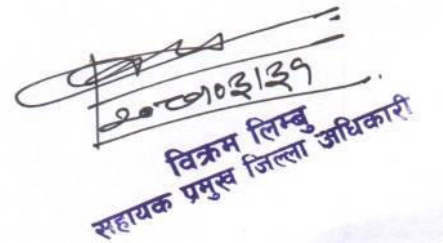 २०८०।०३।३१
विक्रम लिम्बु
सहायक प्रमुख जिल्ला अधिकारी